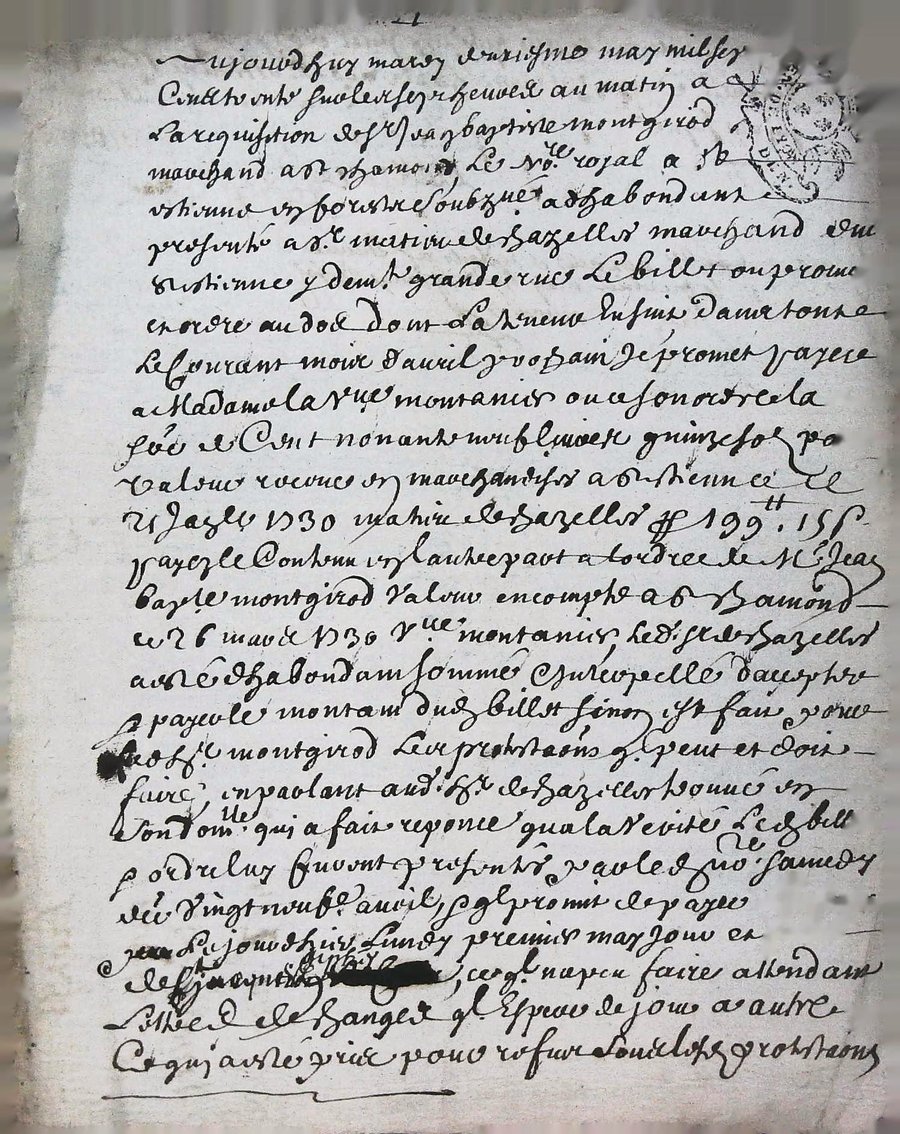 Aujourdhuy mardy deuxiesme may mil sept
Cens trente sur les sept heures au matin a
La requisition de Sr Jean baptiste montgirod
marchand a St chamond, Le Nore royal a St
estienne en forest soubzne a dhabondant
presenté a Sr matieu dechazelles marchand du
St estienne y demt grande rue Le billet ou prome
et ordre au dos dont La teneur Ensuit dans tout
Le Courant mois d'avril prochain Je promet payer
a Madame la Vve montanier ou a son ordre la
so de Cent nonante neuf livres quinze sol po
valeur receue en marchandises a St estienne ce
21 Janr 1730 matieu dechazelles pp 199tt. 15s
payez le Contenu en lautre part a lordre de Mr Jean
baptte montgirod Valeur en compte a St chamond
ce 26 mars 1730 Vve montanier, Led. Sr dechazelles
a esté dhabondam sommé Interpellé d'accepter
payer le montant dud billet sinon est fait pour
led Sr montgirod Les protestaons ql peut et doit
faire, en parlant aud. Sr dechazelles trouvé en
son domlle qui a fait reponce qua la verité Led bill
ordre luy furent presentés par led nore samedy
der Vingt neufe avril, ql promit de payer
Le jour dhier Lundy premier may jour et
de St jacques, ce ql na peu faire attendant
Lettres de change ql Espere de jour a autre
Ce qui a esté pris pour refus sous lesd protestaons